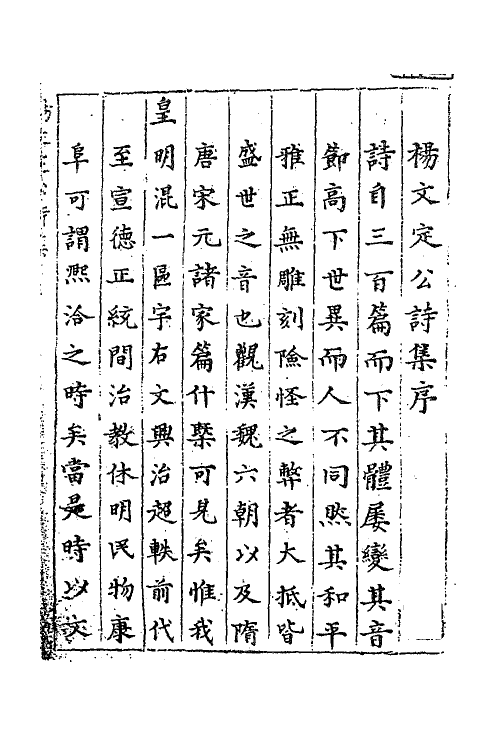 楊文定公詩集序
詩自三百篇而下其體屡變其音
節高下世異而人不同然其和平
雅正無雕刻險怪之弊者大抵皆
盛世之音也觀漢魏六朝以及隋
唐宋元諸家篇什槩可見矣惟我
皇明混一區宇右文興治超軼前代
至宣德正統間治教休明民物康
阜可謂熈洽之時矣當是時以文